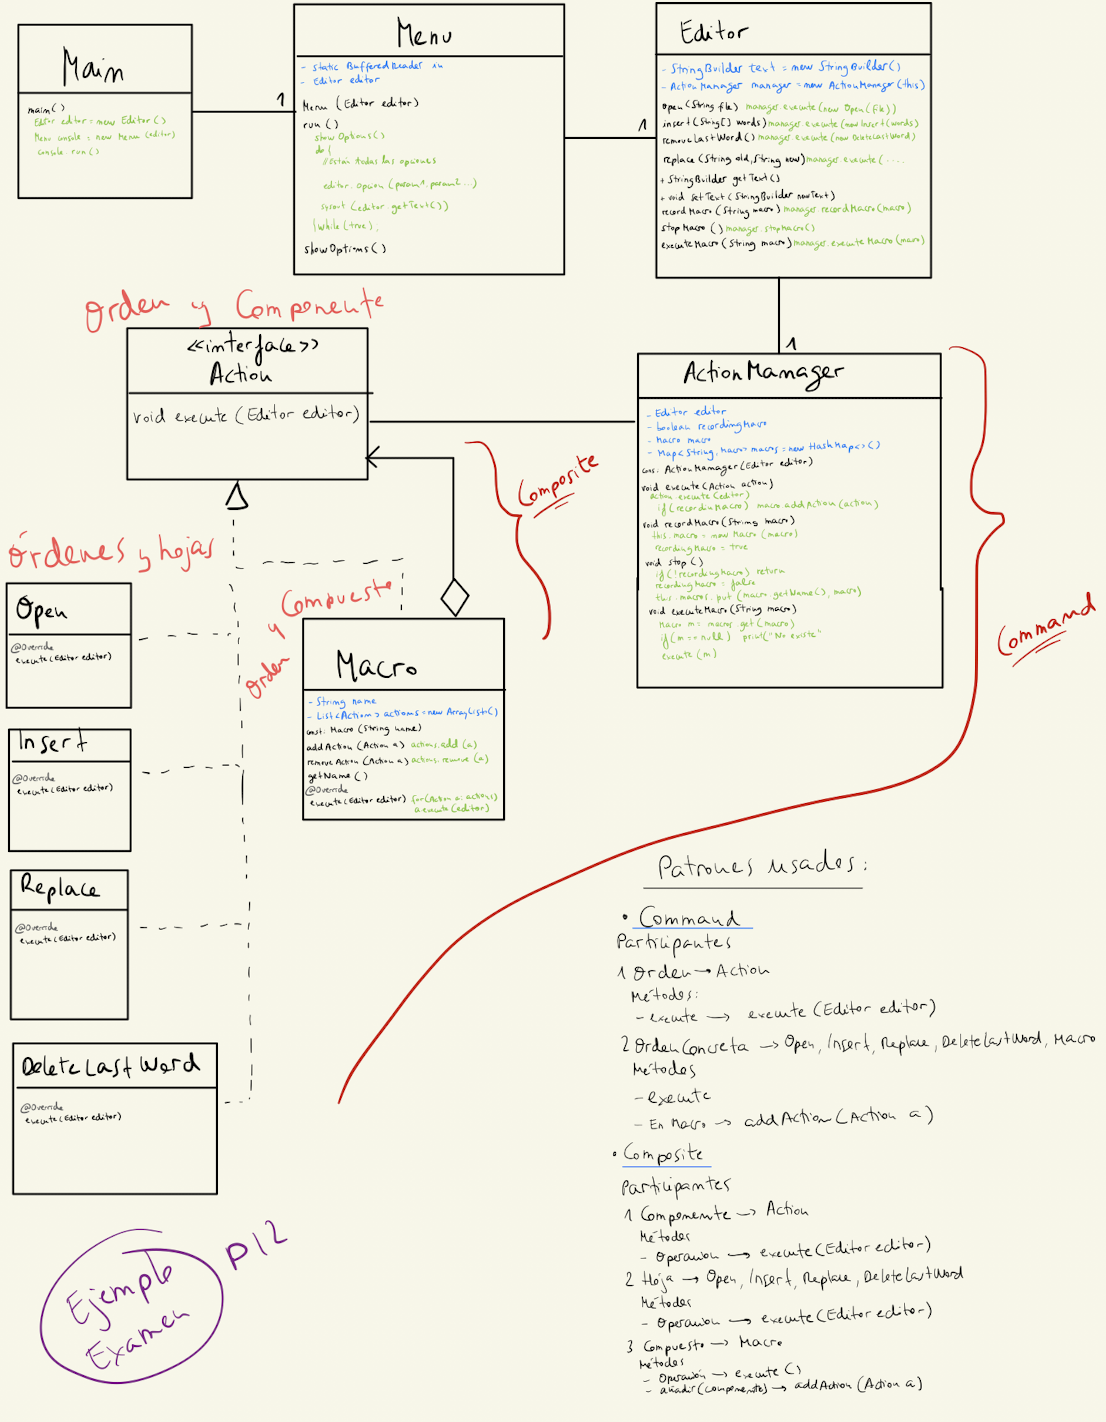 Main
main()
Editor editor = new Editor()
Menu console = new Menu(editor)
console.run()
1
Menu
- static BufferedReader in
- Editor editor
Menu (Editor editor)
run()
showOptions()
do{
//Están todas las opciones
editor.opcion (param1, param2...)
sysout.(editor.getText())
}while(true);
showOptions()
1
Editor
- StringBuilder text = new StringBuilder()
- ActionManager manager = new ActionManager(this)
open(String file) manager.execute(new Open(file))
insert(String[] words) manager.execute(new Insert(words)
removeLastWord() manager.execute(new DeleteLastWord)
replace(String old, String new) manager.execute(....
+ StringBuilder getText()
+ void setText(StringBuilder newText)
recordMacro(String macro) manager.recordMacro(macro)
stopMacro() manager.stopMacro()
executeMacro(String macro) manager.executeMacro(macro)
1
Orden y Componente
<<interface>>
Action
void execute (Editor editor)
ActionManager
- Editor editor
- boolean recordingMacro
- Macro macro
- Map<String, Macro> macros = new HashMap<>()
cons: ActionManager(Editor editor)
void execute(Action action)
action.execute(editor)
if(recordingMacro) macro.addAction(action)
void recordMacro(String macro)
this.macro = new Macro(macro)
recordingMacro = true
void stop()
if(!recordingMacro) return
recordingMacro = false
this.macros.put(macro.getName(), macro)
void executeMacro(String macro)
Macro m = macros.get(macro)
if(m == null) print("No existe"
execute(m)
Composite
Command
Órdenes y hojas
Open
@Override
execute(Editor editor)
Insert
@Override
execute(Editor editor)
Replace
@Override
execute(Editor editor)
DeleteLastWord
@Override
execute(Editor editor)
Orden y Compuesto
Macro
- String name
- List<Action> actions = new ArrayList()
const: Macro(String name)
addAction(Action a) actions.add(a)
removeAction(Action a) actions.remove(a)
getName()
@Override
execute(Editor editor) for(Action a: actions)
a.execute(editor)
Patrones usados:
• Command
Participantes
1 Orden → Action
Métodos:
- execute → execute(Editor editor)
2 OrdenConcreta → Open, Insert, Replace, DeleteLastWord, Macro
Métodos
- execute
- En Macro → addAction(Action a)
• Composite
Participantes
1 Componente → Action
Métodos
- Operación → execute(Editor editor)
2 Hoja → Open, Insert, Replace, DeleteLastWord
Métodos
- Operación → execute(Editor editor)
3 Compuesto → Macro
Métodos
- Operación → execute()
- añadir(componente) → addAction(Action a)
Ejemplo
Examen
P12